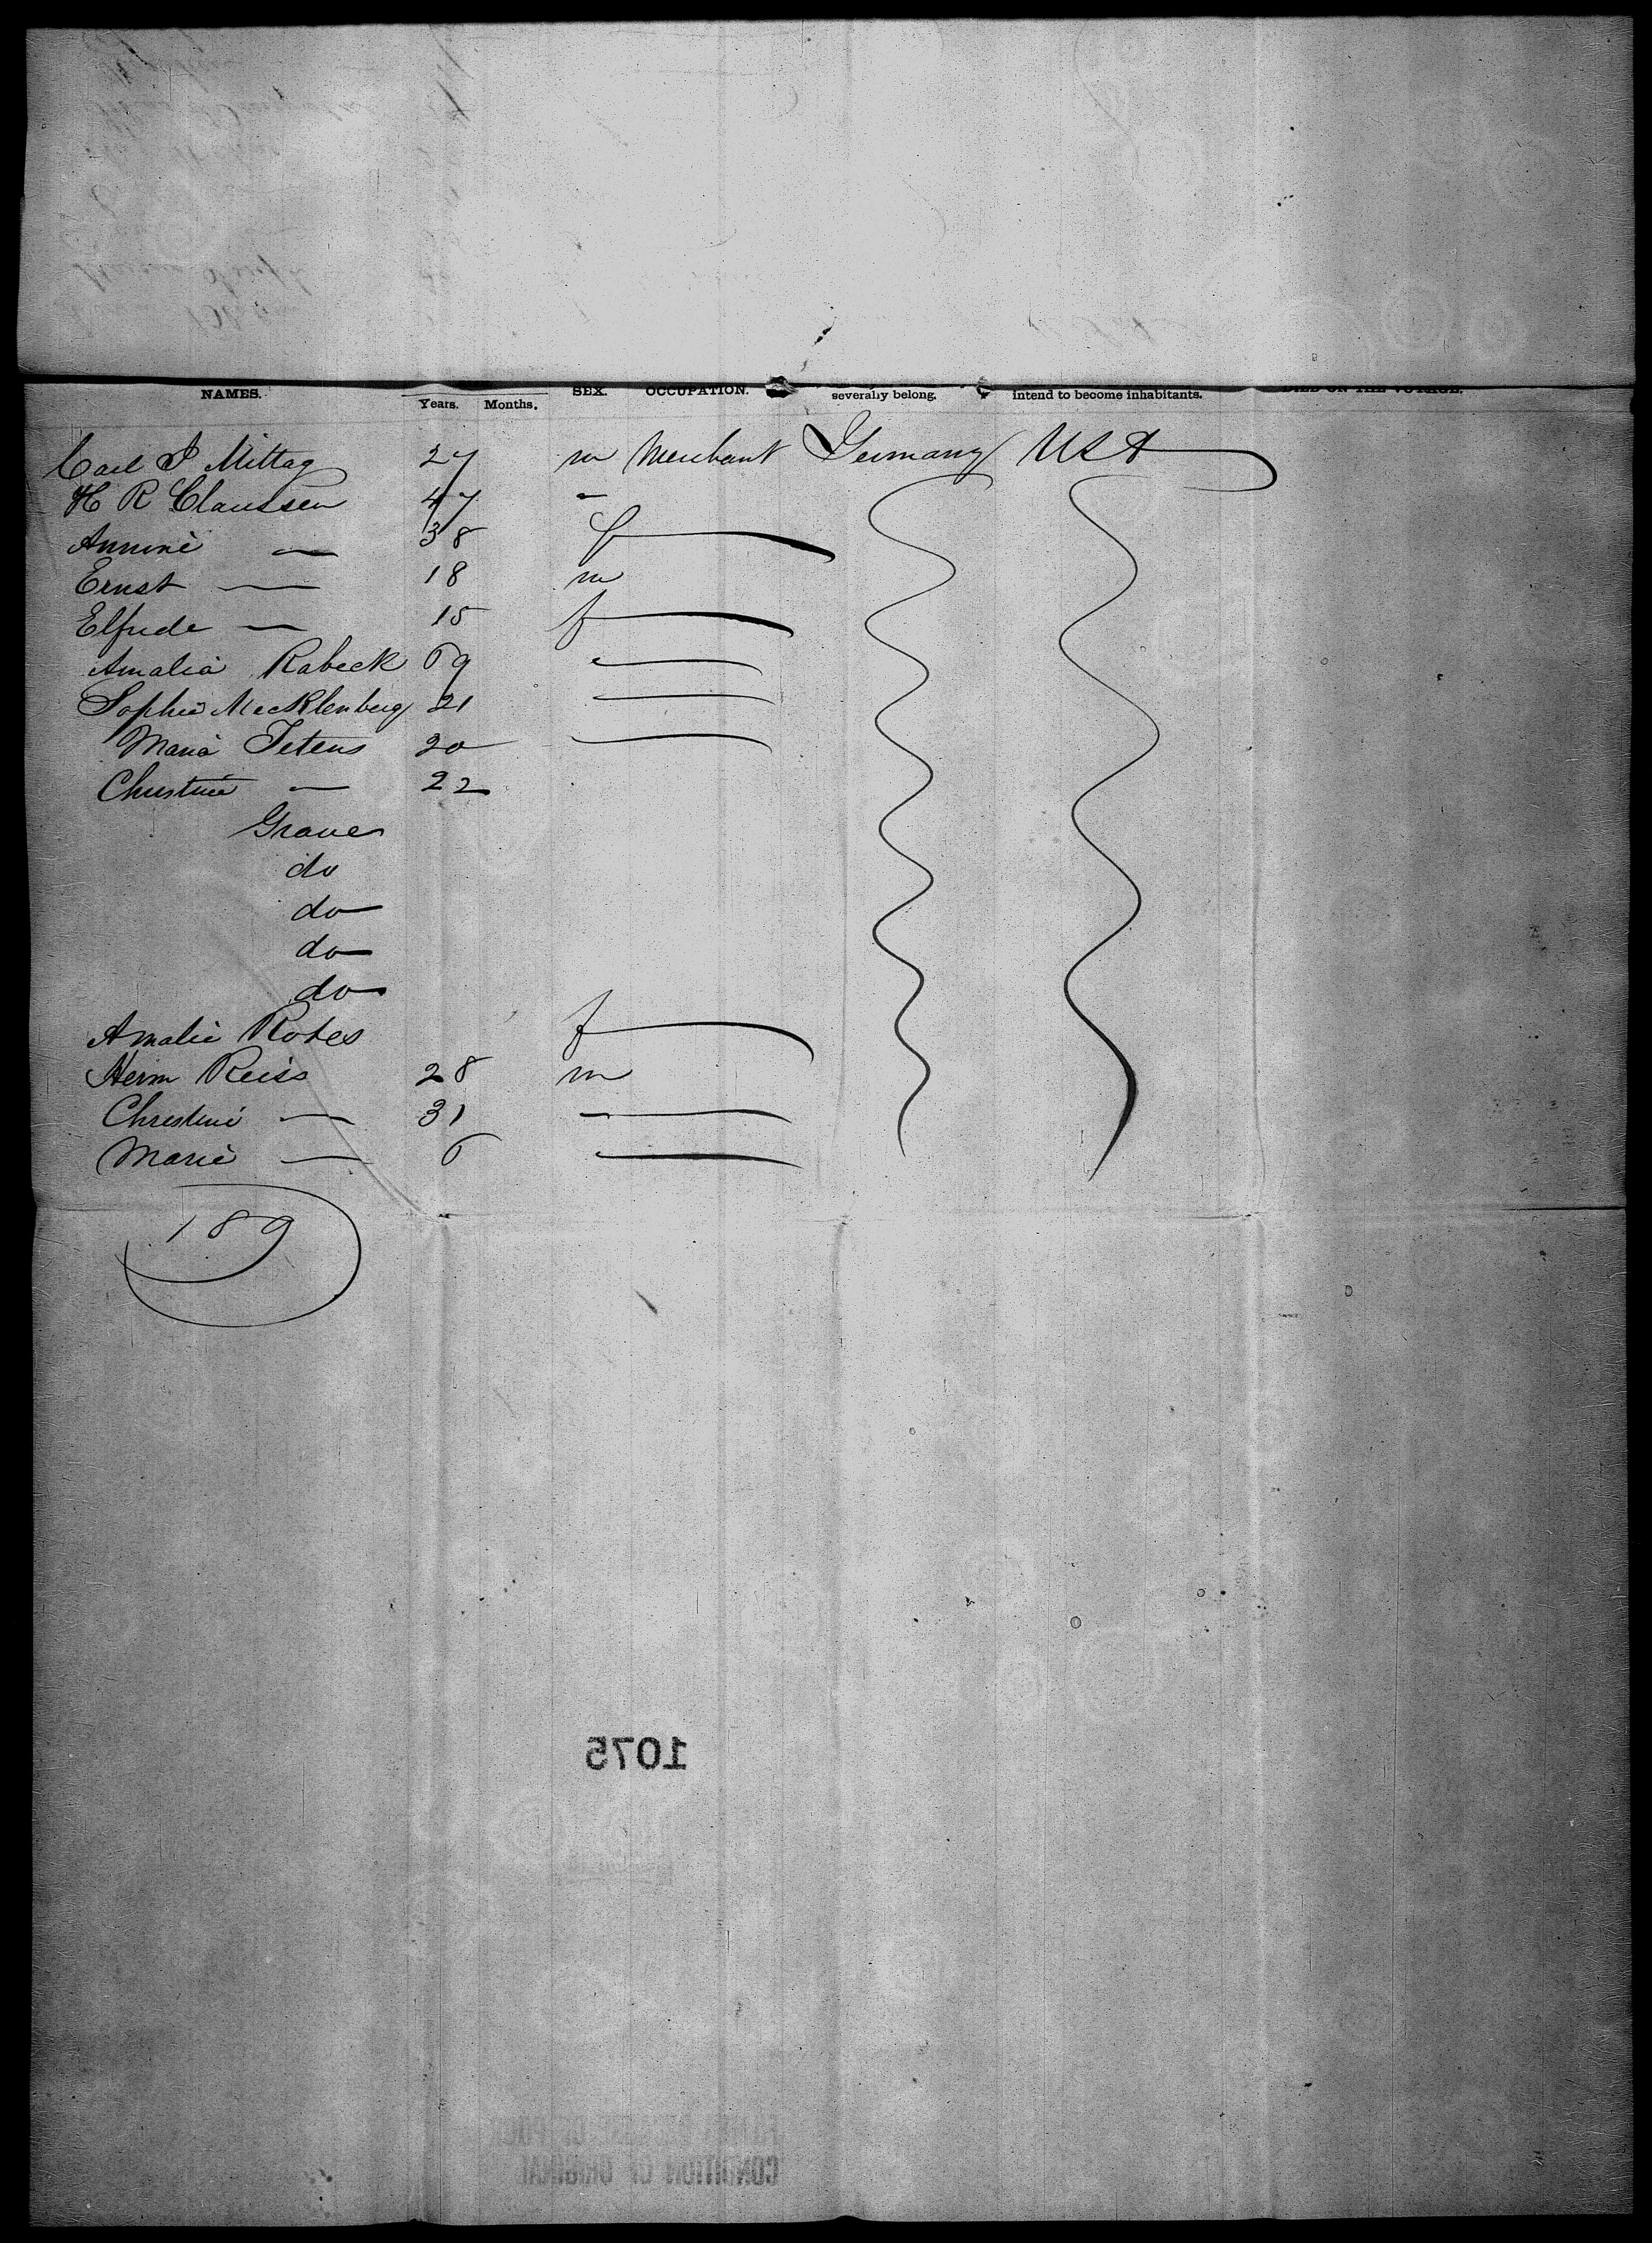 NAMES. Years. Months. SEX. OCCUPATION. severally belong. intend to become inhabitants. DIED ON THE VOYAGE.
Carl P Mittag 27 m Merchant Germany USA
H R Claussen 47 "
Annine — 38 f
Ernst — 18 m
Elfride — 15 f
Amalia Rabeck 69
Sophie Mecklenberg 21
Maria Tetens 20
Christine — 22
Graues
do
do
do
do
Amalie Rotes f
Herm Reiss 28 m
Christine — 31
Marie — 6
189
1075
CONDITION OF ORIGINAL